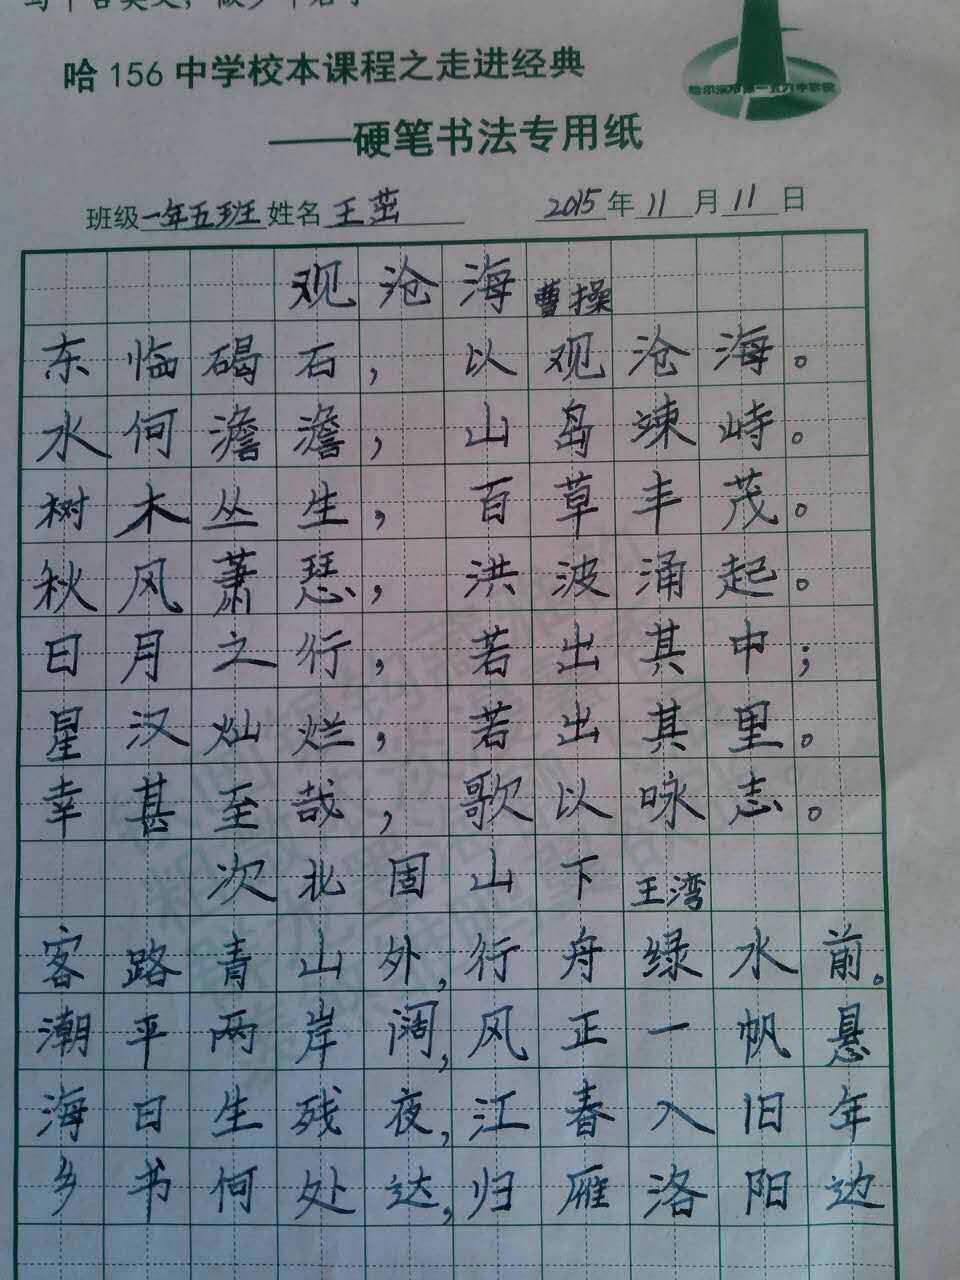 哈156中学校本课程之走进经典
——硬笔书法专用纸
哈尔滨市第一五六中学校
班级一年五班 姓名王茁 2015年11月11日
观沧海 曹操
东临碣石，以观沧海。
水何澹澹，山岛竦峙。
树木丛生，百草丰茂。
秋风萧瑟，洪波涌起。
日月之行，若出其中；
星汉灿烂，若出其里。
幸甚至哉，歌以咏志。
次北固山下 王湾
客路青山外，行舟绿水前。
潮平两岸阔，风正一帆悬
海日生残夜，江春入旧年
乡书何处达，归雁洛阳边